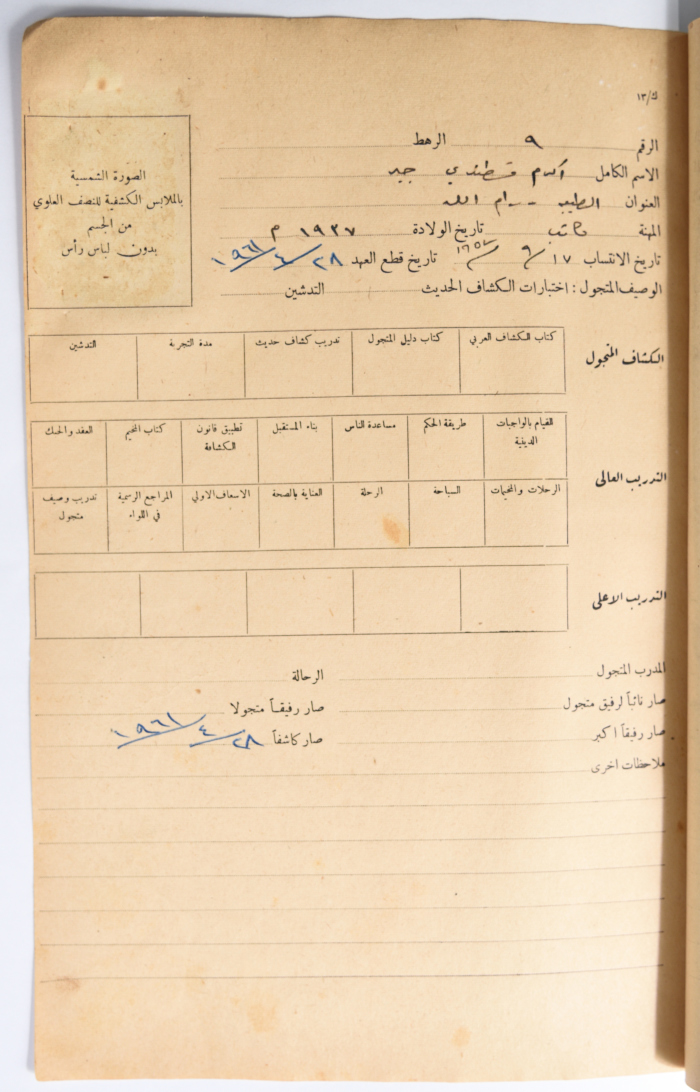 ك/١٣
الرقم ٩ الرهط
الاسم الكامل اكرم قسطندي جبر
العنوان الطيبه - رام الله
المهنة كاتب تاريخ الولادة ١٩٣٧ م
تاريخ الانتساب ١٧/٩/ تاريخ قطع العهد ٢٨/٤/١٩٦١
الوصيف المتجول : اختبارات الكشاف الحديث التدشين
الصورة الشمسية
بالملابس الكشفية للنصف العلوي
من الجسم
بدون لباس رأس
الكشاف المتجول
كتاب الكشاف العربي كتاب دليل المتجول تدريب كشاف حديث مدة التجربة التدشين
التدريب العالى
القيام بالواجبات الدينية طريقة الحكم مساعدة الناس بناء المستقبل تطبيق قانون الكشافة كتاب المخيم العقد والحبك
الرحلات والمخيمات السباحة الرحلة العناية بالصحة الاسعاف الاولي المراجع الرسمية في اللواء تدريب وصيف متجول
التدريب الاعلى
المدرب المتجول الرحالة
صار نائباً لرفيق متجول صار رفيقاً متجولا
صار رفيقاً اكبر صار كاشفاً ٢٨/٤/١٩٦١
ملاحظات اخرى